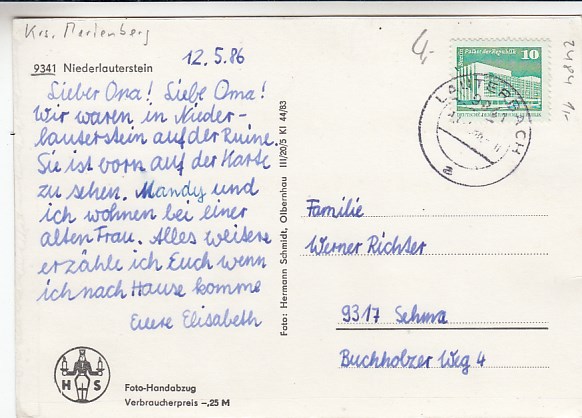 Krs. Marienberg
12.5.86
9341 Niederlauterstein
Lieber Opa! Liebe Oma!
Wir waren in Nieder-
lauterstein auf der Ruine.
Sie ist vorn auf der Karte
zu sehen. Mandy und
ich wohnen bei einer
alten Frau. Alles weitere
erzähle ich Euch wenn
ich nach Hause komme
Eure Elisabeth
H S
Foto-Handabzug
Verbraucherpreis -,25 M
Foto: Hermann Schmidt, Olbernhau III/20/5 Kl 44/83
4,-
Palast der Republik 10
LAUTERBACH
9341
a
Familie
Werner Richter
9317 Sehma
Buchholzer Weg 4